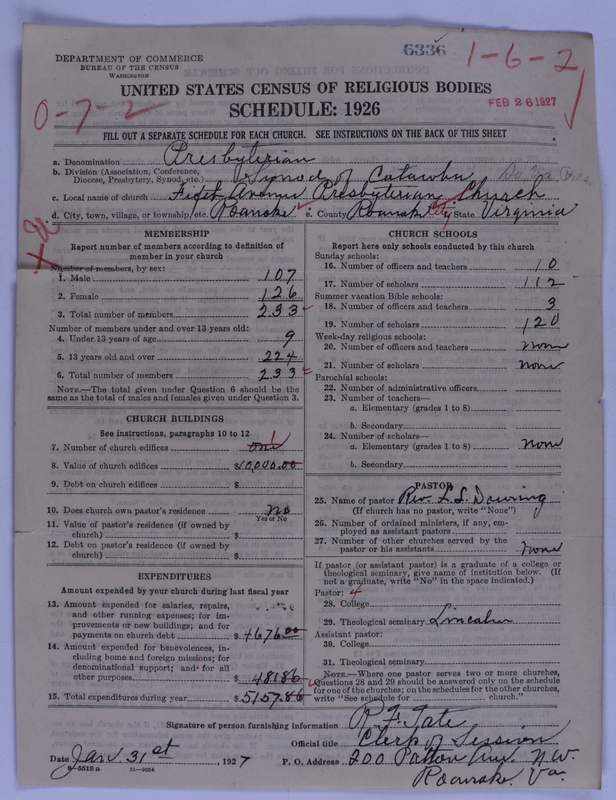 6336
1-6-2
DEPARTMENT OF COMMERCE
BUREAU OF THE CENSUS
WASHINGTON
UNITED STATES CENSUS OF RELIGIOUS BODIES
SCHEDULE: 1926
FEB 26 1927
0-7-2
FILL OUT A SEPARATE SCHEDULE FOR EACH CHURCH. SEE INSTRUCTIONS ON THE BACK OF THIS SHEET
a. Denomination Presbyterian
b. Division (Association, Conference, Diocese, Presbytery, Synod, etc.) Synod of Catawba
c. Local name of church Fifth Avenue Presbyterian Church
d. City, town, village, or township, etc. Roanoke e. County Roanoke City State Virginia
MEMBERSHIP
Report number of members according to definition of
member in your church
Number of members, by sex:
1. Male 107
2. Female 126
3. Total number of members 233
Number of members under and over 13 years old:
4. Under 13 years of age 9
5. 13 years old and over 224
6. Total number of members 233
NOTE.—The total given under Question 6 should be the
same as the total of males and females given under Question 3.
CHURCH BUILDINGS
See instructions, paragraphs 10 to 12
7. Number of church edifices one 1
8. Value of church edifices $10,040.00
9. Debt on church edifices $
10. Does church own pastor's residence no
Yes or No
11. Value of pastor's residence (if owned by
church) $
12. Debt on pastor's residence (if owned by
church) $
EXPENDITURES
Amount expended by your church during last fiscal year
13. Amount expended for salaries, repairs,
and other running expenses; for im-
provements or new buildings; and for
payments on church debt $4676.00
14. Amount expended for benevolences, in-
cluding home and foreign missions; for
denominational support; and for all
other purposes $481.86
15. Total expenditures during year $5157.86
CHURCH SCHOOLS
Report here only schools conducted by this church
Sunday schools:
16. Number of officers and teachers 10
17. Number of scholars 112
Summer vacation Bible schools:
18. Number of officers and teachers 3
19. Number of scholars 120
Week-day religious schools:
20. Number of officers and teachers none
21. Number of scholars none
Parochial schools:
22. Number of administrative officers
23. Number of teachers—
a. Elementary (grades 1 to 8)
b. Secondary
24. Number of scholars—
a. Elementary (grades 1 to 8) none
b. Secondary
PASTOR
25. Name of pastor Rev. L. L. Downing
(If church has no pastor, write "None")
26. Number of ordained ministers, if any, em-
ployed as assistant pastors
27. Number of other churches served by the
pastor or his assistants none
If pastor (or assistant pastor) is a graduate of a college or
theological seminary, give name of institution below. (If
not a graduate, write "No" in the space indicated.)
Pastor: 4
28. College
29. Theological seminary Lincoln
Assistant pastor:
30. College
31. Theological seminary
NOTE.—Where one pastor serves two or more churches,
Questions 28 and 29 should be answered only on the schedule
for one of the churches; on the schedules for the other churches,
write "See schedule for church."
Signature of person furnishing information R. F. Tate
Official title Clerk of Session
Date Jan 31st, 1927 P. O. Address 200 Patton Ave. N.W.
8-5518 a 11-9054 Roanoke Va.